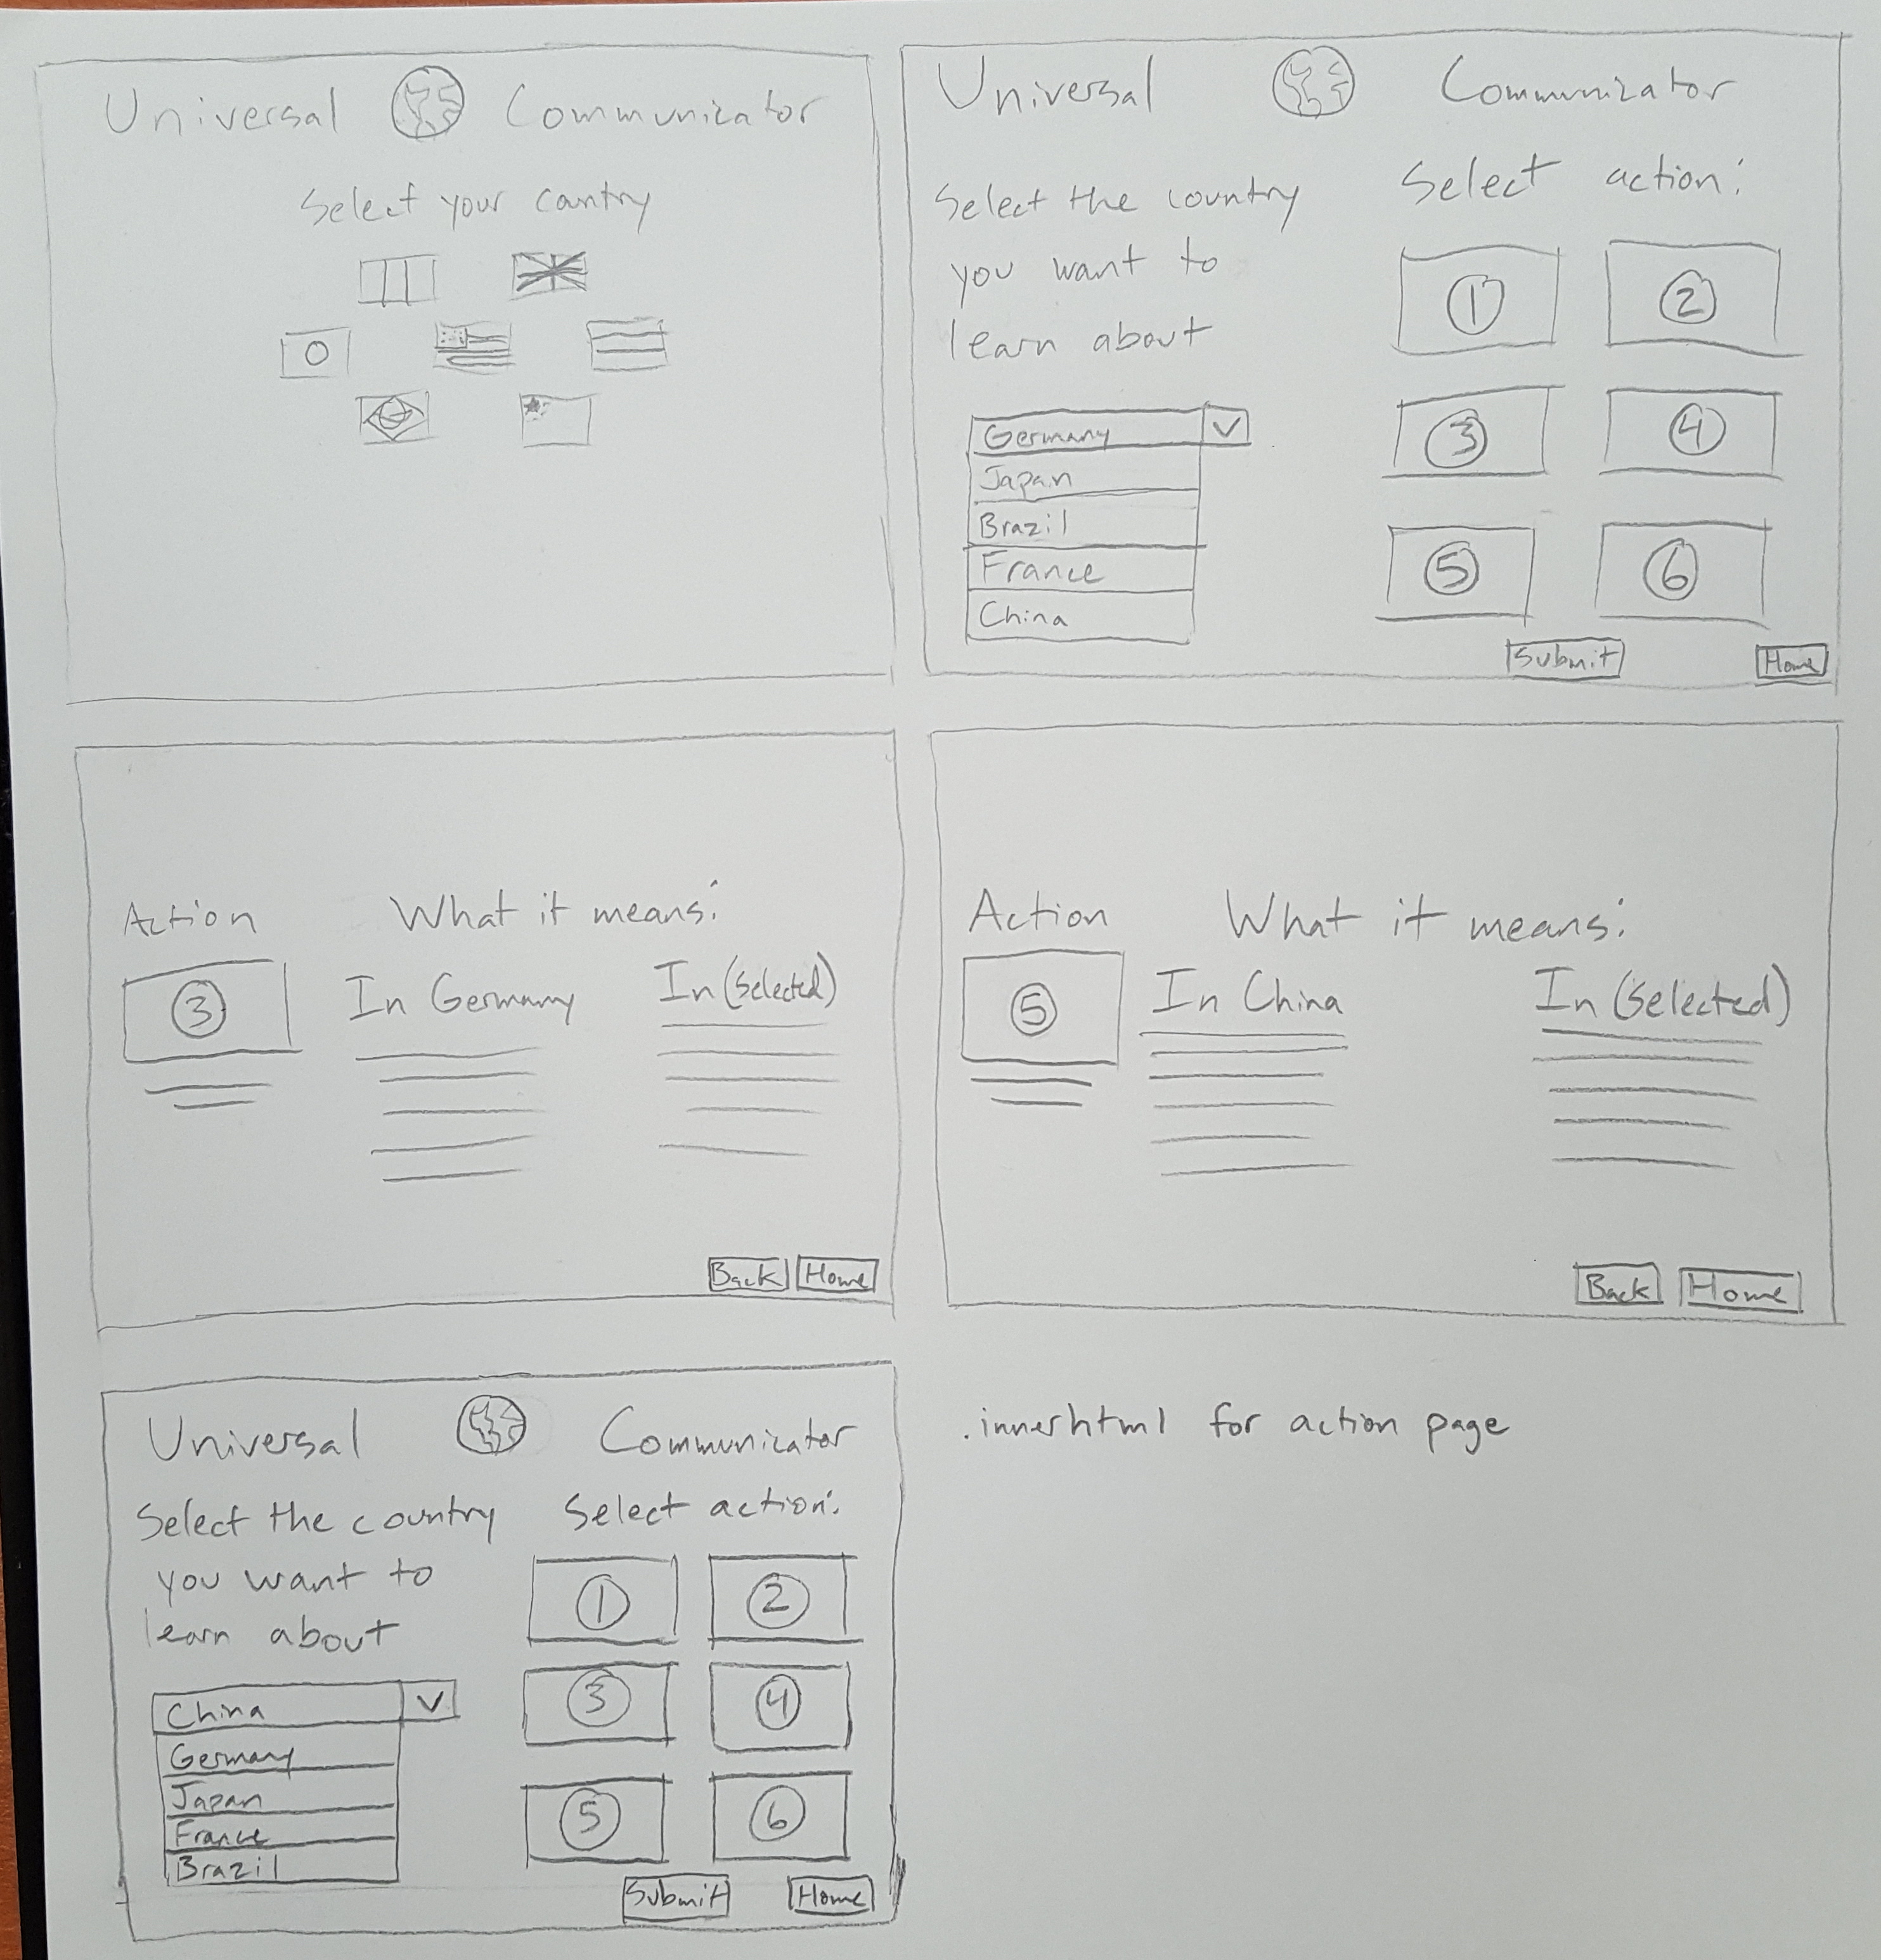 Universal Communicator
Select your country
Universal Communicator
Select the country
you want to
learn about
Germany V
Japan
Brazil
France
China
Select action:
1 2
3 4
5 6
Submit Home
Action
3
What it means:
In Germany In (Selected)
Back Home
Action
5
What it means:
In China In (Selected)
Back Home
Universal Communicator
Select the country
you want to
learn about
China V
Germany
Japan
France
Brazil
Select action:
1 2
3 4
5 6
Submit Home
.innerhtml for action page